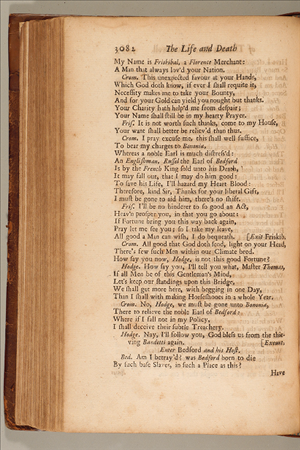 3082 The Life and Death
My Name is Friskibal, a Florence Merchant:
A Man that always lov'd your Nation.
Crom. This unexpected favour at your Hands,
Which God doth know, if ever I shall requite it,
Necessity makes me to take your Bounty,
And for your Gold can yield you nought but thanks.
Your Charity hath help'd me from despair;
Your Name shall still be in my hearty Prayer.
Fris. It is not worth such thanks, come to my House,
Your want shall better be reliev'd than thus.
Crom. I pray excuse me, this shall well suffice,
To bear my charges to Bononia,
Whereas a noble Earl is much distress'd:
An Englishman, Russel the Earl of Bedford
Is by the French King sold unto his Death,
It may fall out, that I may do him good:
To save his Life, I'll hazard my Heart Blood:
Therefore, kind Sir, Thanks for your liberal Gift,
I must be gone to aid him, there's no shift.
Fris. I'll be no hinderer to so good an Act,
Heav'n prosper you, in that you go about:
If Fortune bring you this way back again,
Pray let me see you; so I take my leave,
All good a Man can wish, I do bequeath. [Exit Friskib.
Crom. All good that God doth send, light on your Head,
There's few such Men within our Climate bred.
How say you now, Hodge, is not this good Fortune?
Hodge. How say you, I'll tell you what, Master Thomas,
If all Men be of this Gentleman's Mind,
Let's keep our standings upon this Bridge,
We shall get more here, with begging in one Day,
Than I shall with making Horseshooes in a whole Year.
Crom. No, Hodge, we must be gone unto Bononia,
There to relieve the noble Earl of Bedford:
Where if I fail not in my Policy,
I shall deceive their subtle Treachery.
Hodge. Nay, I'll follow you, God bless us from the thie-
ving Bandetti again. [Exeunt.
Enter Bedford and his Host.
Bed. Am I betray'd? was Bedford born to die
By such base Slaves, in such a Place as this?
Have